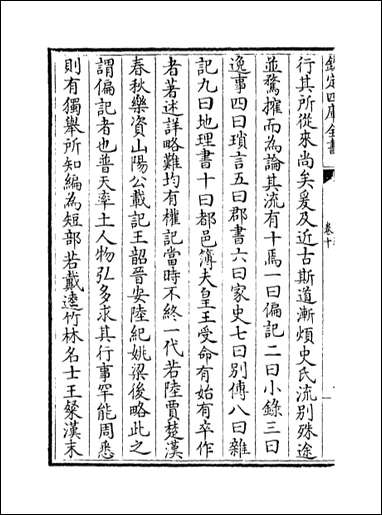 欽定四庫全書
卷十
行其所從來尚矣爰及近古斯道漸煩史氏流別殊途
並騖搉而為論其流有十焉一曰偏記二曰小錄三曰
逸事四曰瑣言五曰郡書六曰家史七曰別傳八曰雜
記九曰地理書十曰都邑簿夫皇王受命有始有卒作
者著述詳略難均有權記當時不終一代若陸賈楚漢
春秋樂資山陽公載記王韶晉安陸紀姚梁後略此之
謂偏記者也普天率土人物弘多求其行事罕能周悉
則有獨舉所知編為短部若戴逵竹林名士王粲漢末